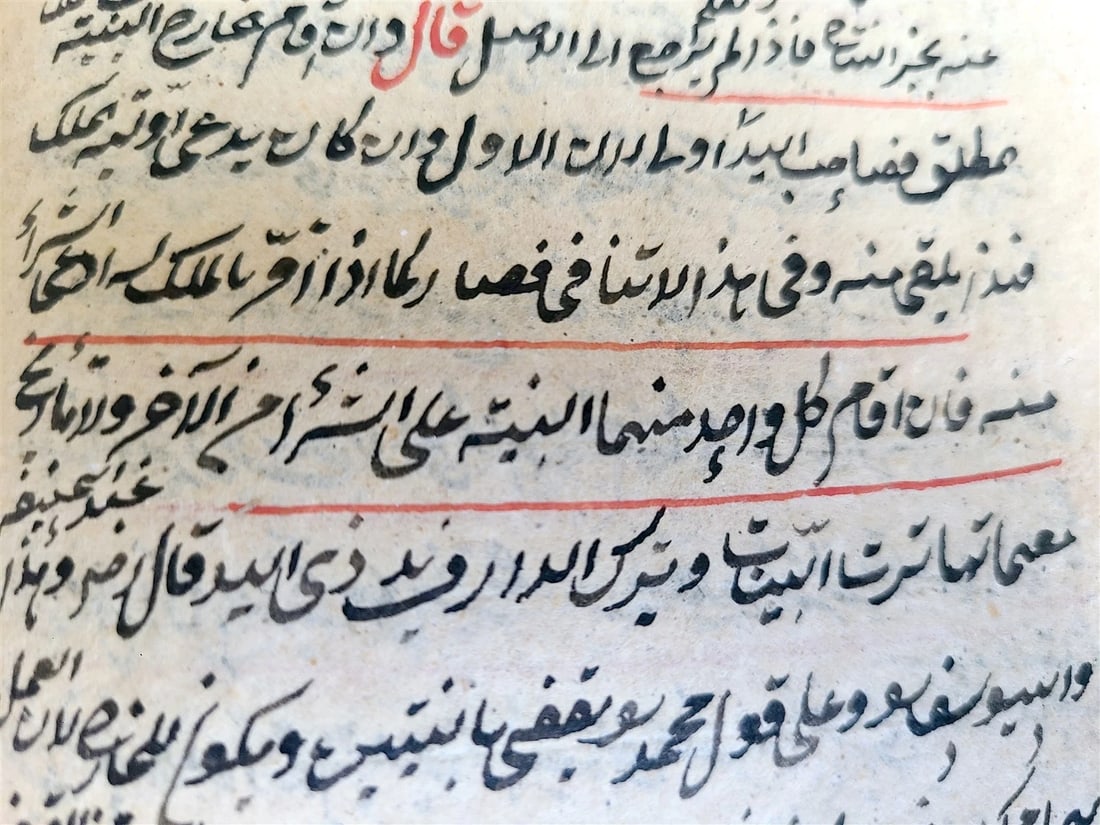 عنه بخبر الشاة فاذا لم يرجع الى الاصل قال وان اقام الخارج البينة
مطلق فصاحب اليد اولى لان الاول وان كان يدعى اولية الملك
فهذا تلقى منه وفى هذا لا تنافى فصار كما اذا اقر بالملك له ثم ادعى الشراء
منه فان اقام كل واحد منهما البينة على الشراء من الآخر ولا تاريخ
معهما تهاترت البينات ويترك الدار فى يد ذى اليد قال رضي وهذا عند ابى حنيفة
وابى يوسف وعلى قول محمد يقضى بالبينتين ويكون للخارج لان العمل